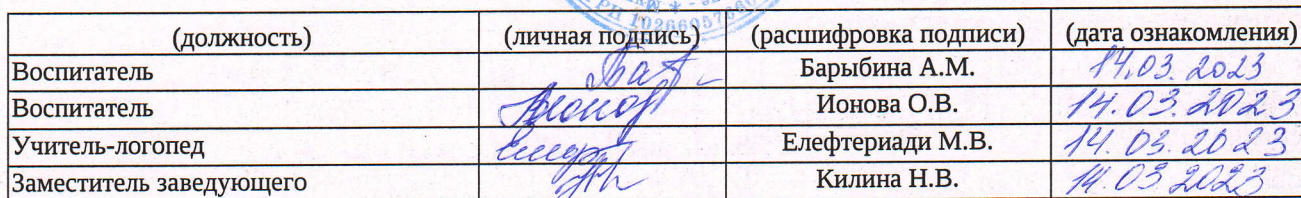 (должность) (личная подпись) (расшифровка подписи) (дата ознакомления)
Воспитатель Барыбина А.М. 14.03.2023
Воспитатель Ионова О.В. 14.03.2023
Учитель-логопед Елефтериади М.В. 14.03.2023
Заместитель заведующего Килина Н.В. 14.03.2023